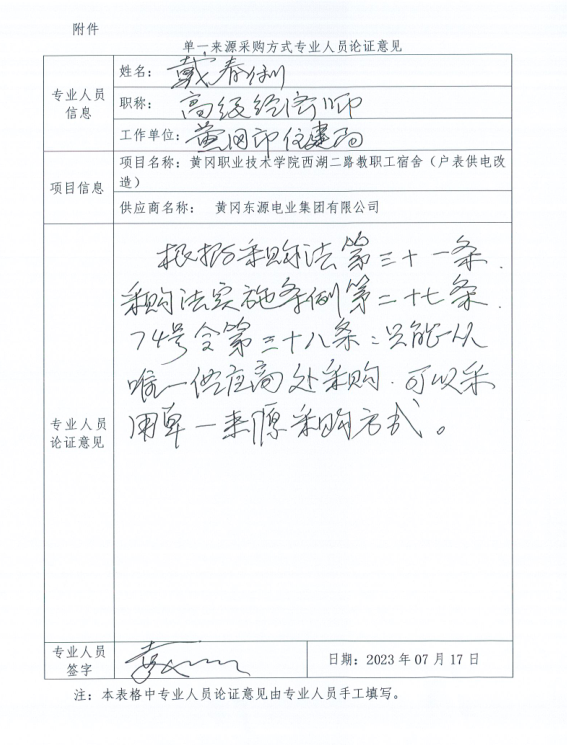 附件
单一来源采购方式专业人员论证意见
专业人员
信息
姓名：戴春
职称：高级经济师
工作单位：黄冈市住建局
项目信息
项目名称：黄冈职业技术学院西湖二路教职工宿舍（户表供电改
造）
供应商名称： 黄冈东源电业集团有限公司
专业人员
论证意见
根据采购法第三十一条.
采购法实施条例第二十七条.
74号令第三十八条：只能从
唯一供应商处采购.可以采
用单一来源采购方式。
专业人员
签字
日期：2023 年 07 月 17 日
注：本表格中专业人员论证意见由专业人员手工填写。